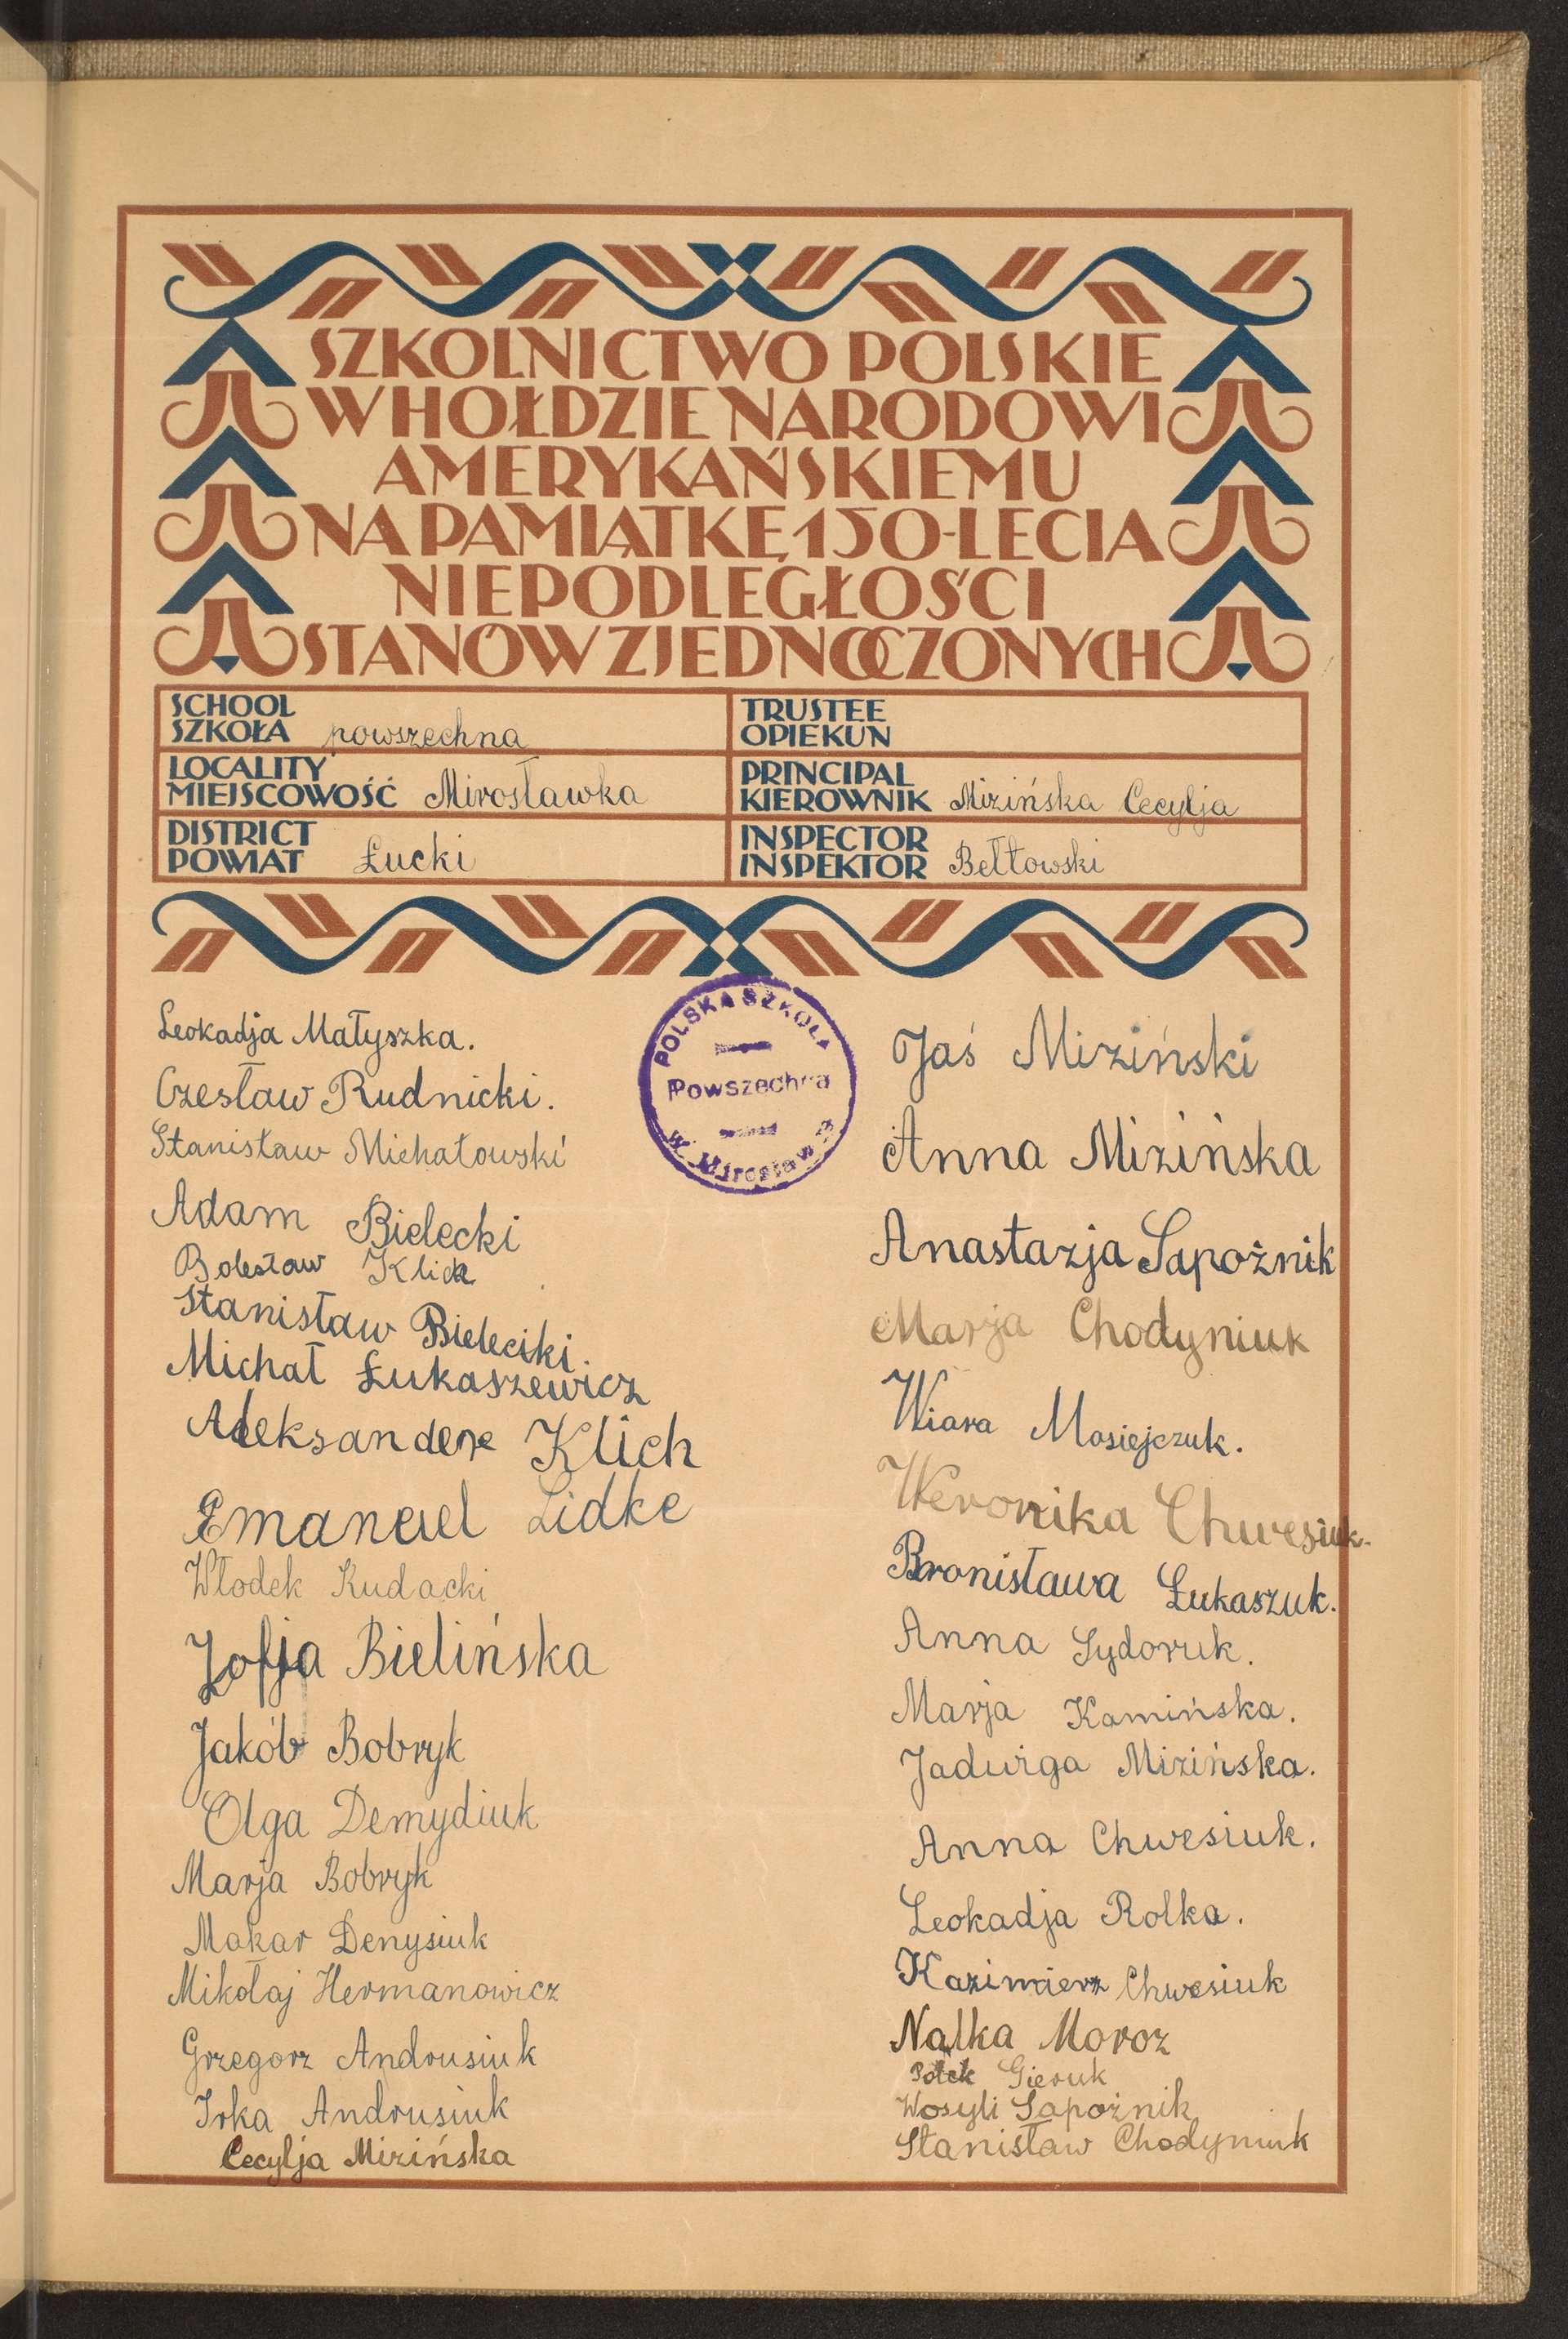 SZKOLNICTWO POLSKIE
W HOŁDZIE NARODOWI
AMERYKAŃSKIEMU
NA PAMIĄTKĘ 150-LECIA
NIEPODLEGŁOŚCI
STANÓW ZJEDNOCZONYCH
SCHOOL
SZKOŁA powszechna
TRUSTEE
OPIEKUN
LOCALITY
MIEJSCOWOŚĆ Mirosławka
PRINCIPAL
KIEROWNIK Mizińska Cecylja
DISTRICT
POWIAT Łucki
INSPECTOR
INSPEKTOR Bełtowski
POLSKA SZKOŁA
Powszechna
Leokadja Małyszka.
Czesław Rudnicki.
Stanisław Michałowski
Adam Bielecki
Bolesław Klich
Stanisław Bieleciki.
Michał Łukaszewicz
Aleksander Klich
Emanuel Lidke
Włodek Kudacki
Zofja Bielińska
Jakób Bobryk
Olga Demydiuk
Marja Bobryk
Makar Denysiuk
Mikołaj Hermanowicz
Grzegorz Andrusiuk
Irka Andrusiuk
Cecylja Mizińska
Jaś Miziński
Anna Mizińska
Anastazja Sapożnik
Marja Chodyniuk
Wiara Mosiejczuk.
Weronika Chwesiuk.
Bronisława Łukaszuk.
Anna Sydoruk.
Marja Kamińska.
Jadwiga Mizińska.
Anna Chwesiuk.
Leokadja Rolka.
Kazimierz Chwesiuk
Nalka Moroz
Gieruk
Wosyli Sapożnik
Stanisław Chodyniuk